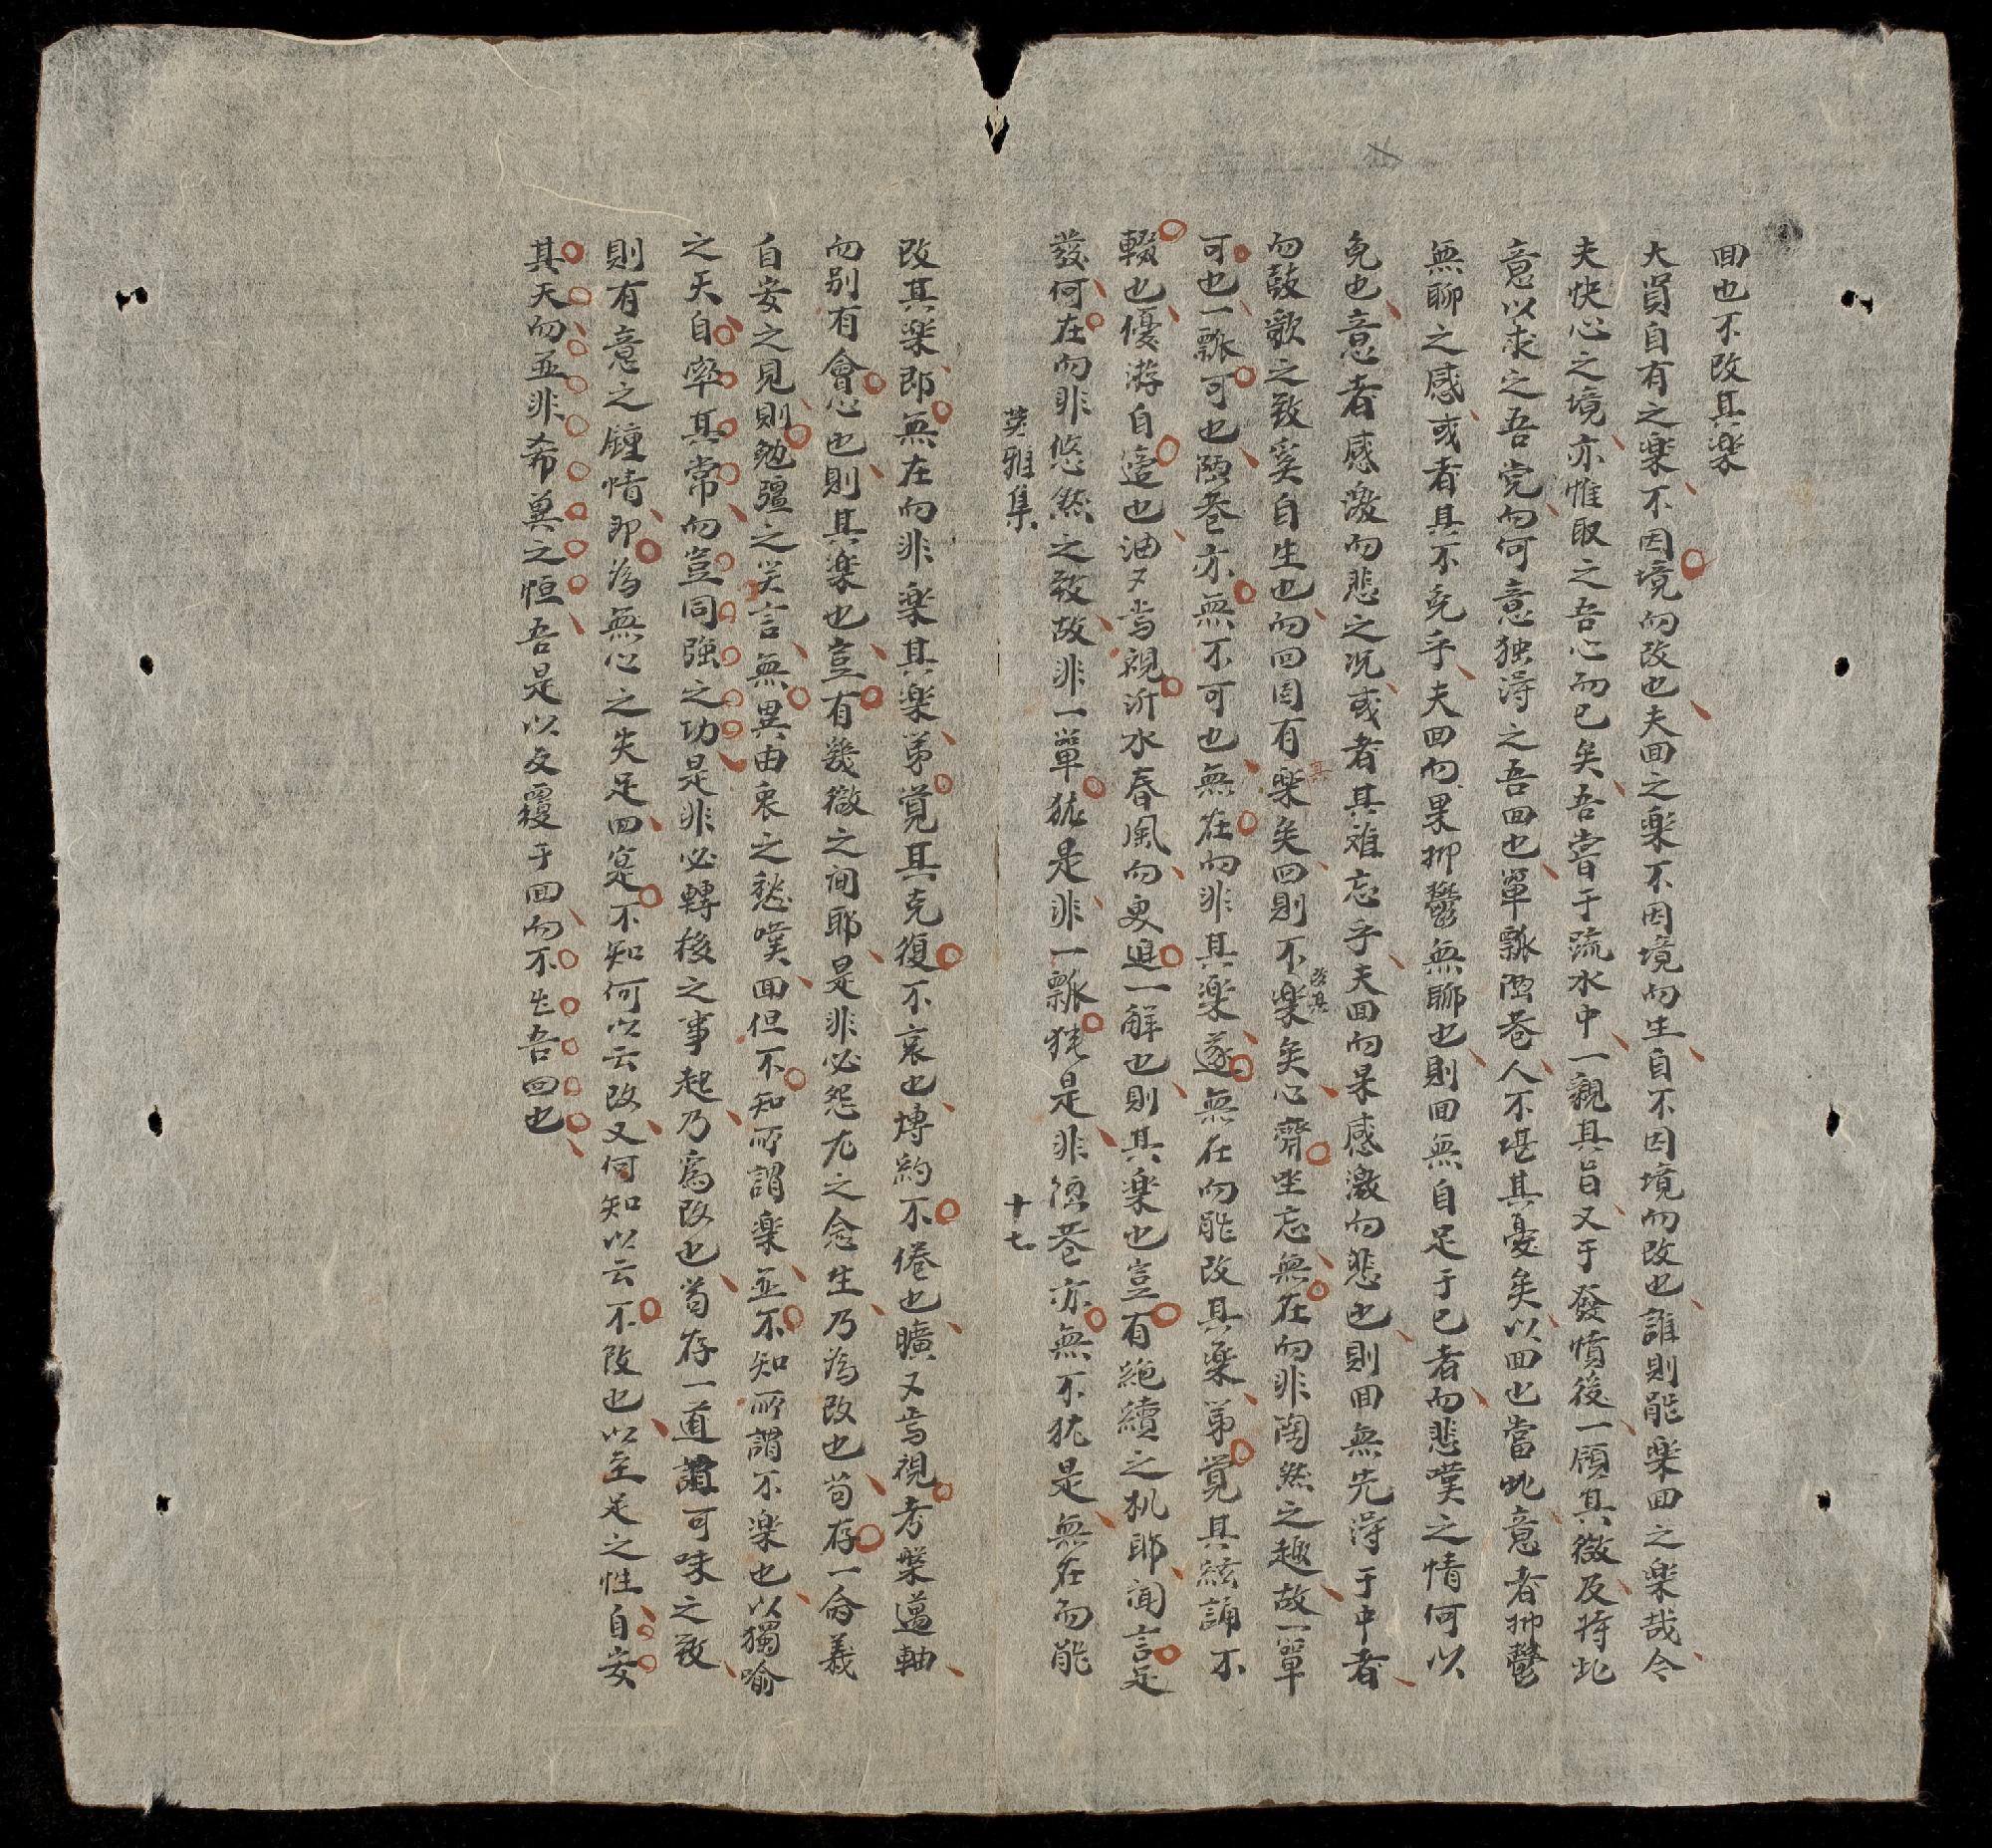 回也不改其楽
大賢自有之楽不因境而改也夫回之楽不因境而生自不因境而改也誰則能楽回之楽哉令
夫快心之境亦惟取之吾心而已矣吾嘗于疏水中一親其旨又于發憤後一頋其微及將此
意以求之吾党而何意独淂之吾回也單瓢陋巷人不堪其憂矣以回也當此意者抑鬱
無聊之感或者其不免乎夫回而果抑鬱無聊也則回無自足于已者而悲嘆之情何以
免也意者感激而悲之况或者其难忘乎夫回而果感激而悲也則回無先淂于中者
而鼓歌之致奚自生也而回固有其楽矣回則不改其楽矣心齋坐忘無在而非陶然之趣故一單
可也一瓢可也陋巷亦無不可也無在而非其楽遂無在而能改其楽第覚其絃誦不
輟也優游自適也油々焉視沂水春風而更進一解也則其楽也豈有絶續之机耶聞言足
發何在而非悠然之致故非一單犹是非一瓢犹是非陋巷亦無不犹是無在而能
英雅集
十七
改其楽即無在而非楽其楽第覚其克復不衰也博約不倦也曠々焉視考槃邁軸
而别有會心也則其楽也豈有幾微之间耶是非必怨尤之念生乃為改也苟存一㑹義
自安之見則勉彊之笑言無異由衷之愁嘆回但不知所謂楽並不知所謂不楽也以獨喻
之天自率其常而豈同强之功是非必轉移之事起乃為改也苟存一道謂可味之致
則有意之鍾情即為無心之失足回寔不知何以云改又何知以云不改也以至足之性自安
其天而並非希異之恒吾是以反覆于回而不𫢉吾回也